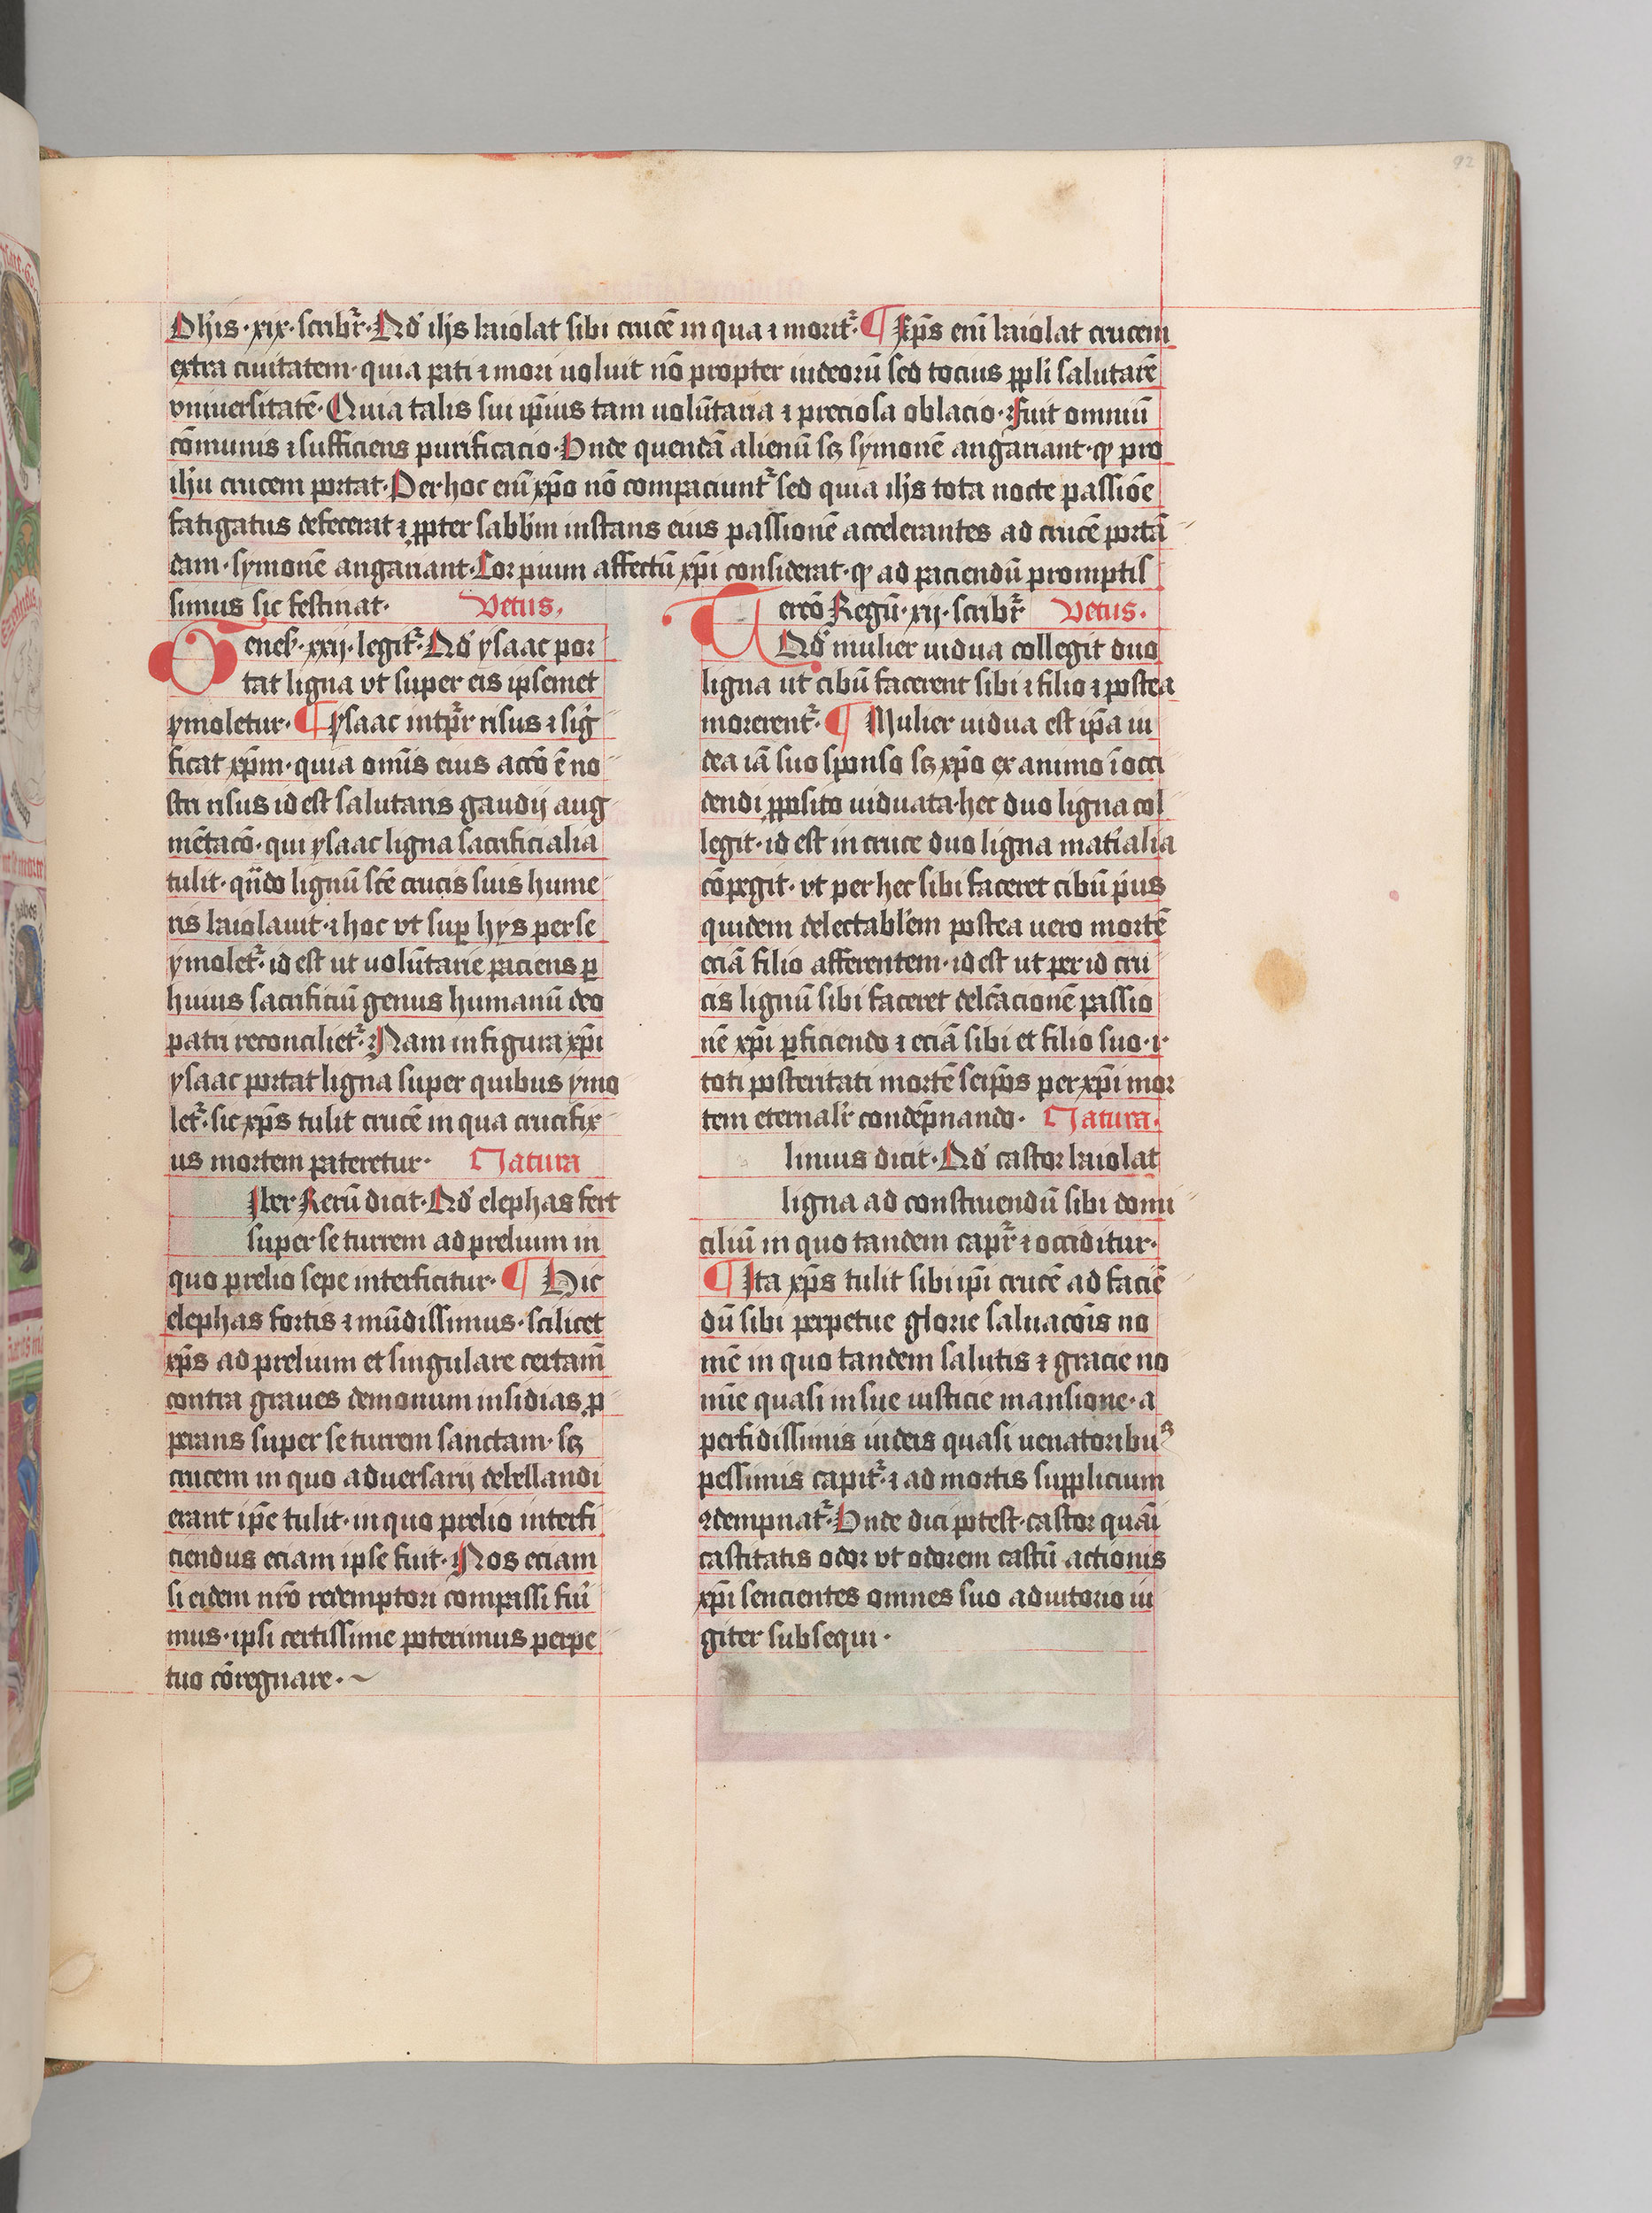 92
Ohis · xix · scribr̃ · Qd̕ ih̄s baiolat sibi crucē in qua ⁊ morit᷑ · ¶ Xp̄s eni baiolat crucem
extra ciuitatem · quia pati ⁊ mori uoluit nō propter iudeorū sed tocius pp̄li salutarē
vniuersitatē · Quia talis sui ip̄ius tam uolūtaria ⁊ preciosa oblacio · Fuit omniū
cōmunis ⁊ sufficiens purificacio · Vnde quendā alienū scꝫ symonē angariant · qꝫ pro
ih̄u crucem portat · Per hoc eni xp̄o nō compaciunt᷑ sed quia ih̄s tota nocte passiōe
fatigatus defecerat ⁊ ꝓpter sabb̄m instans eius passionē accelerantes ad crucē portā
dam · symonē angariant · Cor pium affectū xp̄i considerat · qꝫ ad paciendū promptis
simus sic festinat · Vetus ·
Geneẜ · xxij · legit᷑ · Qd̕ ysaac por
tat ligna vt super eis ipsemet
ymoletur · ¶ Ysaac intp̄r risus ⁊ sig̕
ficat xp̄m · quia om̄is eius acc̄o ē no
stri risus id est salutaris gaudij aug
mētac̄o · qui ysaac ligna sacrificialia
tulit · qn̄do lignū sc̄e crucis suis hume
ris baiolauit · ⁊ hoc vt suꝑ hys per se
ymolet᷑ · id est ut uolūtarie paciens ꝑ
huius sacrificiū genus humanū deo
patri reconciliet᷑ · Nam in figura xp̄i
ysaac portat ligna super quibus ymo
let᷑ · sic xp̄s tulit crucē in qua crucifix
us mortem pateretur · Natura
Iber Rerū dicit · Qd̕ elephas fert
super se turrem ad prelium in
quo prelio sepe interficitur · ¶ Hic
elephas fortis ⁊ mūdissimus · scilicet
xp̄s ad prelium et singulare certam̄
contra graues demonum insidias ꝓ
perans super se turrem sanctam · scꝫ
crucem in quo aduersarij debellandi
erant ip̄e tulit · in quo prelio interfi
ciendus eciam ipse fuit · Nos eciam
si eidem nr̄o redemptori compassi fuī
mus · ipsi certissime poterimus perpe
tuo cōregnare ·
Tercō Regū · xij · scribr̃ Vetus ·
Qd̕ mulier uidua collegit duo
ligna ut cibū facerent sibi ⁊ filio ⁊ postea
morerent᷑ · ¶ Mulier uidua est ip̄a iu
dea iā suo sponso scꝫ xp̄o ex animo ī occi
dendi ꝓposito uiduata · hec duo ligna col
legit · id est in cruce duo ligna mat̕ialia
cōpegit · vt per hec sibi faceret cibū p̕us
quidem delectabl̕em postea uero mortē
eciā filio afferentem · id est ut per id cru
cis lignū sibi faceret delc̄acionē passio
nē xp̄i ꝑficiendo ⁊ eciā sibi et filio suo · i ·
toti posteritati mortē seip̄os per xp̄i mor
tem eternalr̕ condēpnando · Natura ·
linius dicit · Qd̕ castor baiolat
ligna ad construendū sibi domi
ciliū in quo tandem capr̃ ⁊ occiditur ·
¶ Ita xp̄s tulit sibi ip̄i crucē ad faciē
dū sibi perpetue glorie saluac̄ois no
mē in quo tandem salutis ⁊ gracie no
mīe quasi in sue iusticie mansione · a
perfidissimis iudeis quasi uenatoribuꝰ
pessimis capit᷑ · ⁊ ad mortis supplicium
ꝯdempnat᷑ · Vnde dici potest · castor quāi
castitatis odor vt odorem castū actionis
xp̄i sencientes omnes suo adiutorio iu
giter subsequi ·